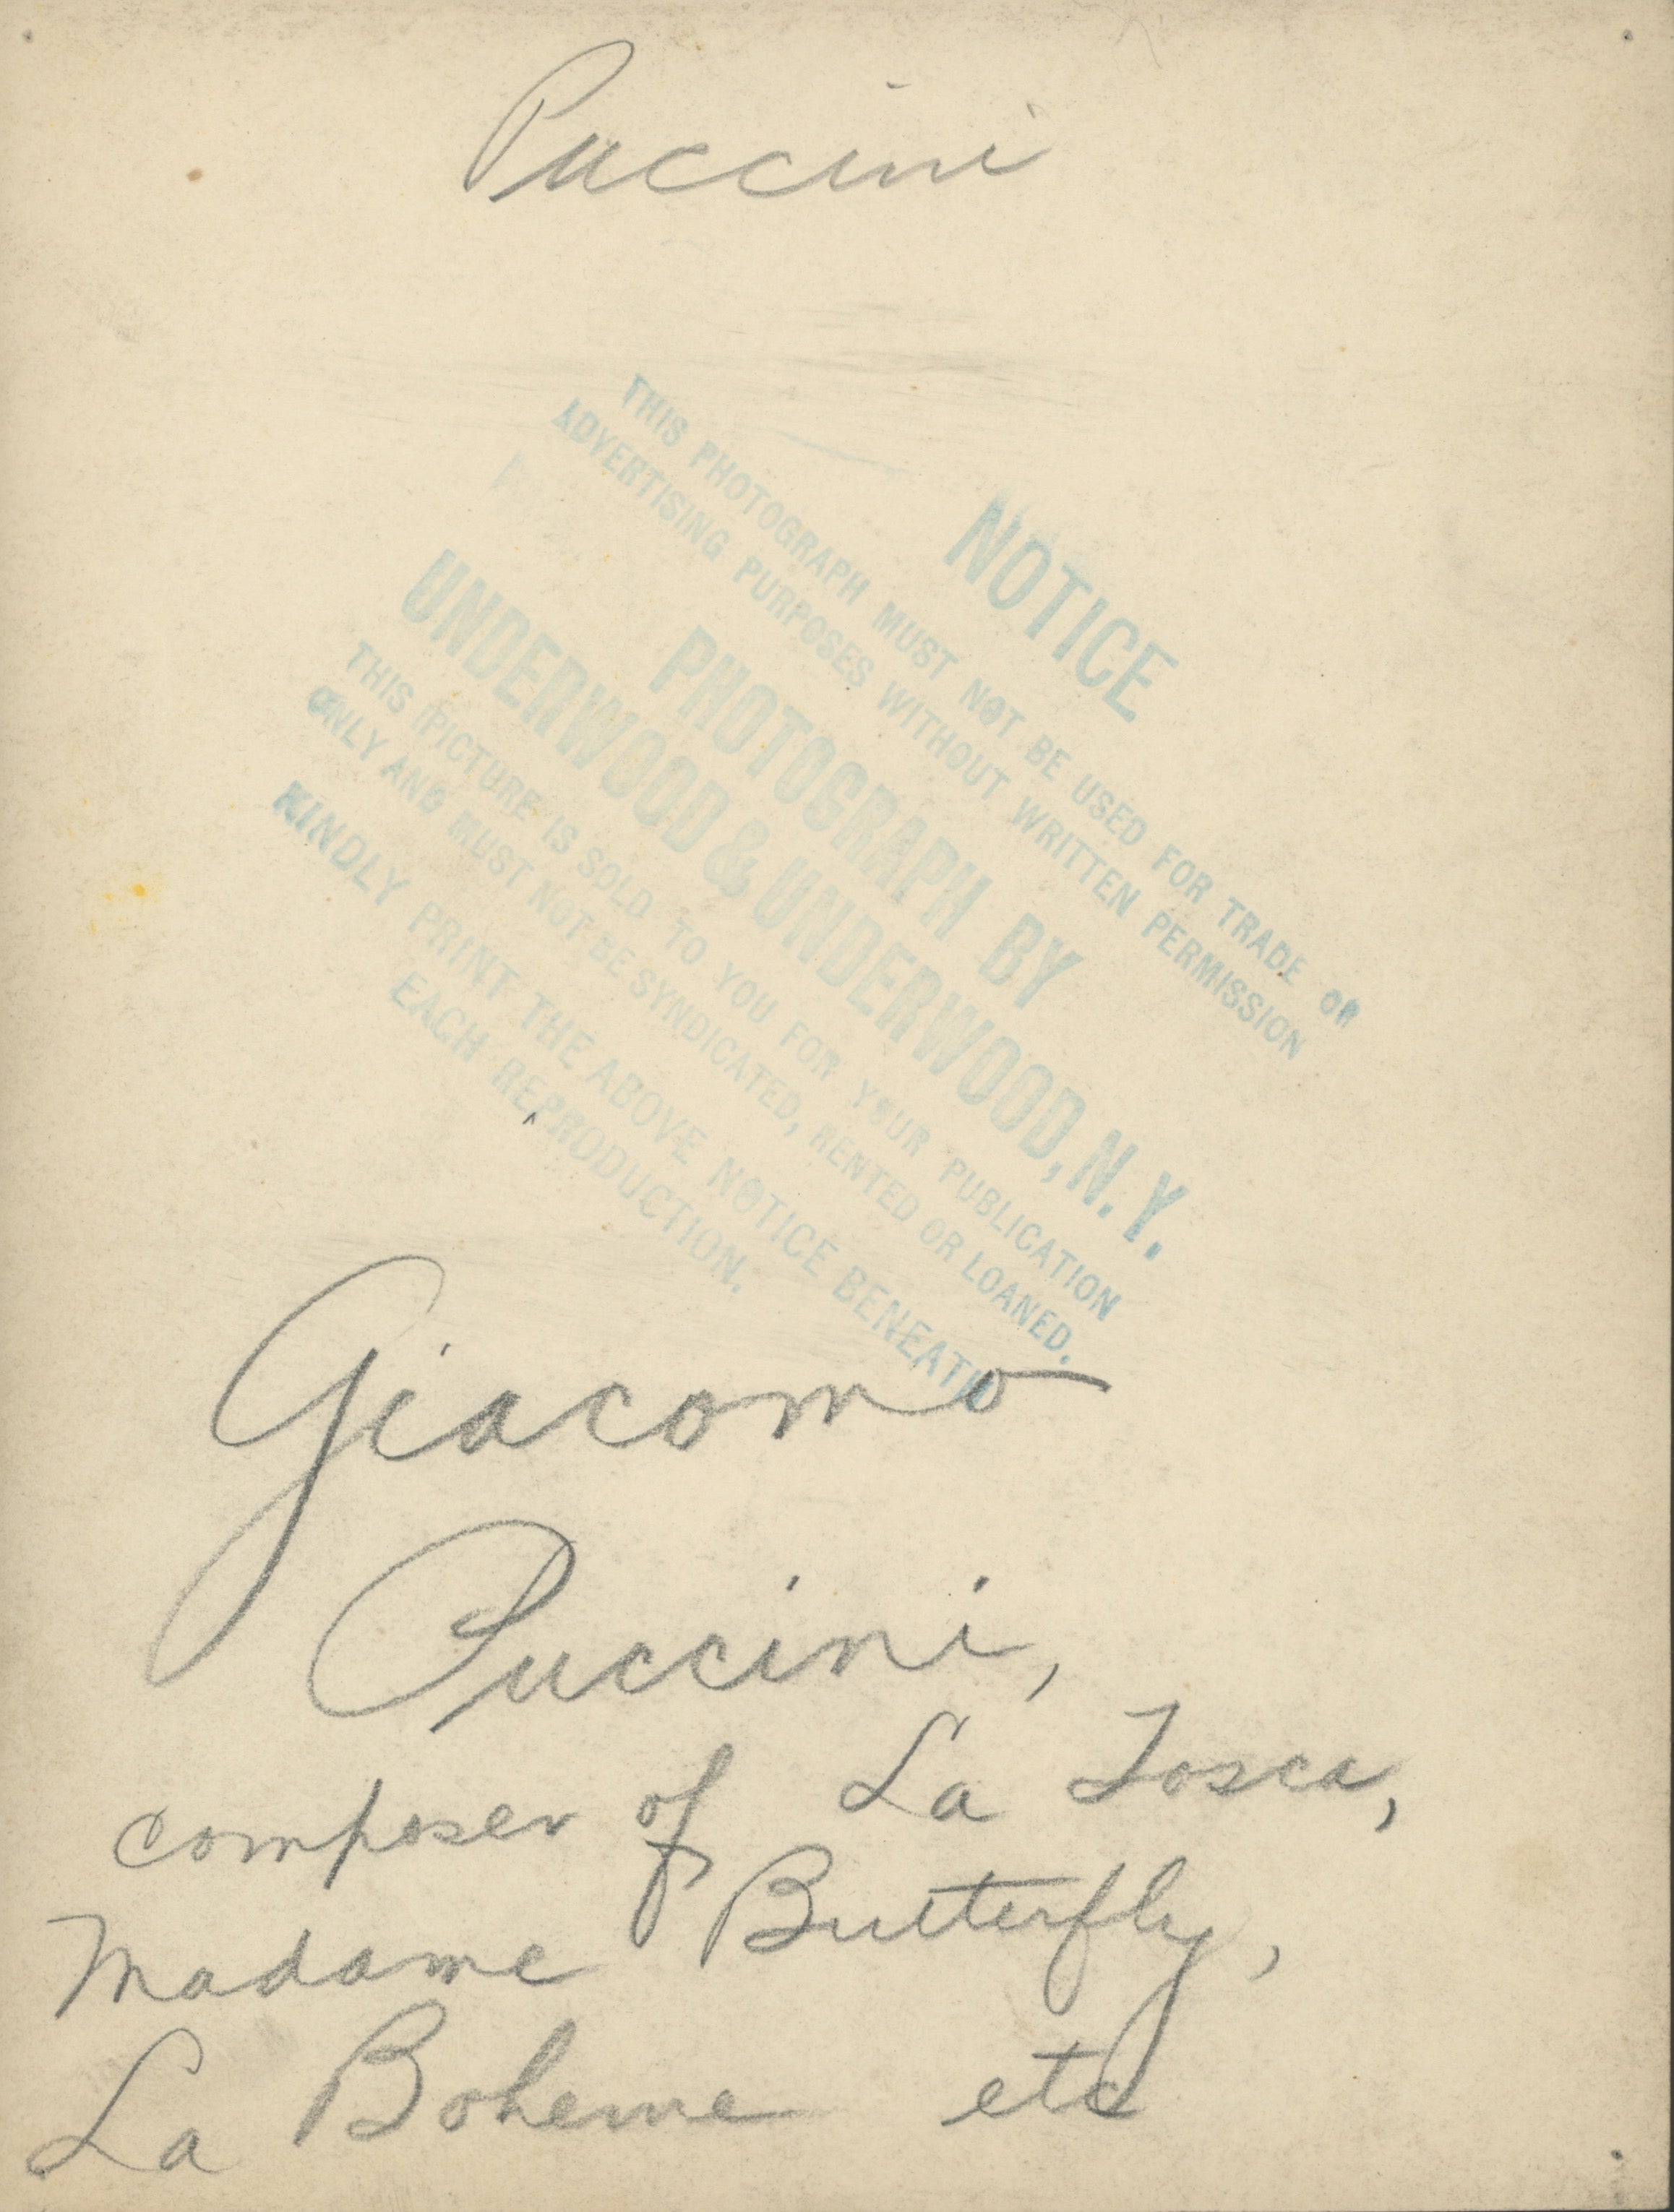 Puccini
NOTICE
THIS PHOTOGRAPH MUST NOT BE USED FOR TRADE OR
ADVERTISING PURPOSES WITHOUT WRITTEN PERMISSION
PHOTOGRAPH BY
UNDERWOOD & UNDERWOOD, N.Y.
THIS PICTURE IS SOLD TO YOU FOR YOUR PUBLICATION
ONLY AND MUST NOT BE SYNDICATED, RENTED OR LOANED.
KINDLY PRINT THE ABOVE NOTICE BENEATH
EACH REPRODUCTION.
Giacomo
Puccini,
composer of La Tosca,
Madame Butterfly,
La Boheme etc